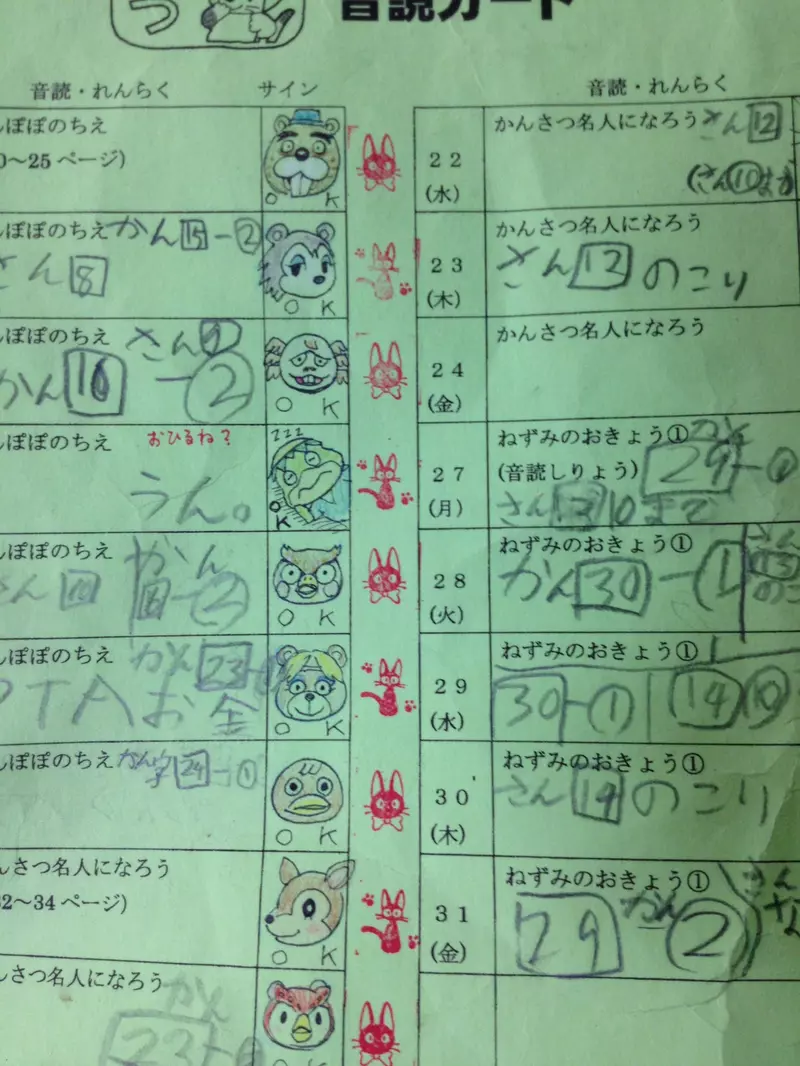 つ
音読カード
音読・れんらく サイン
んぽぽのちえ
0～25ページ)
OK
んぽぽのちえ かん15-②
さん8
OK
んぽぽのちえ さん9
かん16-②
OK
んぽぽのちえ おひるね？
うん。
zzz
OK
んぽぽのちえ かん
さん
-②
OK
んぽぽのちえ かん23
PTAお金
OK
んぽぽのちえ かん字24-①
OK
んさつ名人になろう
32～34ページ)
OK
んさつ名人になろう かん
23
OK
音読・れんらく
22
(水)
かんさつ名人になろう さん12
(さん⑩まで
23
(木)
かんさつ名人になろう
さん12のこり
24
(金)
かんさつ名人になろう
27
(月)
ねずみのおきょう① かん
(音読しりょう) 29-
さん13 10まで
28
(火)
ねずみのおきょう① さん
かん30-① 13
のこ
29
(水)
ねずみのおきょう①
30-① 14⑩
30
(木)
ねずみのおきょう①
さん14のこり
31
(金)
ねずみのおきょう① さん
29 かん②